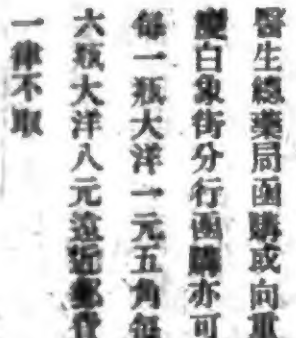 醫生總藥局函購或向重
慶白象街分行函購亦可
每一瓶大洋一元五角每
六瓶大洋八元遠近郵費
一律不取